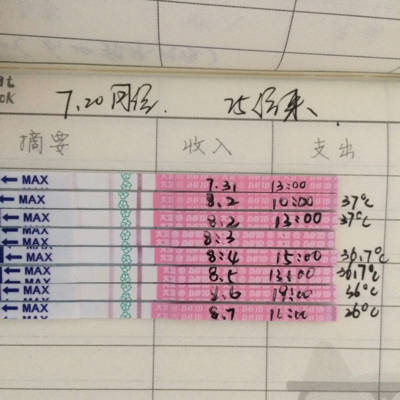 7.20同房. 25经来、
摘要 收入 支出
MAX 7.31 13:00
MAX 8.2 10:00 37℃
MAX 8.2 13:00 37℃
MAX 8.3
MAX 8.4 15:00 36.7℃
MAX 8.5 13:00 36.7℃
MAX 8.6 19:00 36℃
MAX 8.7 12:00 36℃